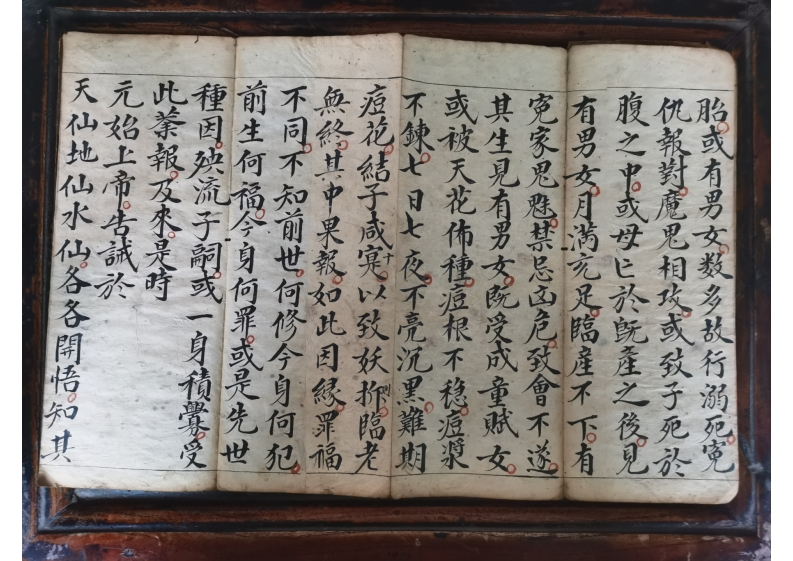 胎或有男女数多故行溺死寃
仇報對魔鬼相攻或致子死於
腹之中或母亡於旣產之後見
有男女月滿充足臨產不下有
寃家鬼魅禁忌凶危致會不遂
其生見有男女旣受成童賦女
或被天花佈種痘根不稳痘漿
不鍊七日七夜不亮沉黑難期
痘花結子咸寔十以致妖折臨老
無終其中果報如此因緣罪福
不同不知前世何修今身何犯
前生何福今身何罪或是先世
種因殃流子嗣或一身積釁受
此業報及來是時
元始上帝告誡於
天仙地仙水仙各各開悟知其